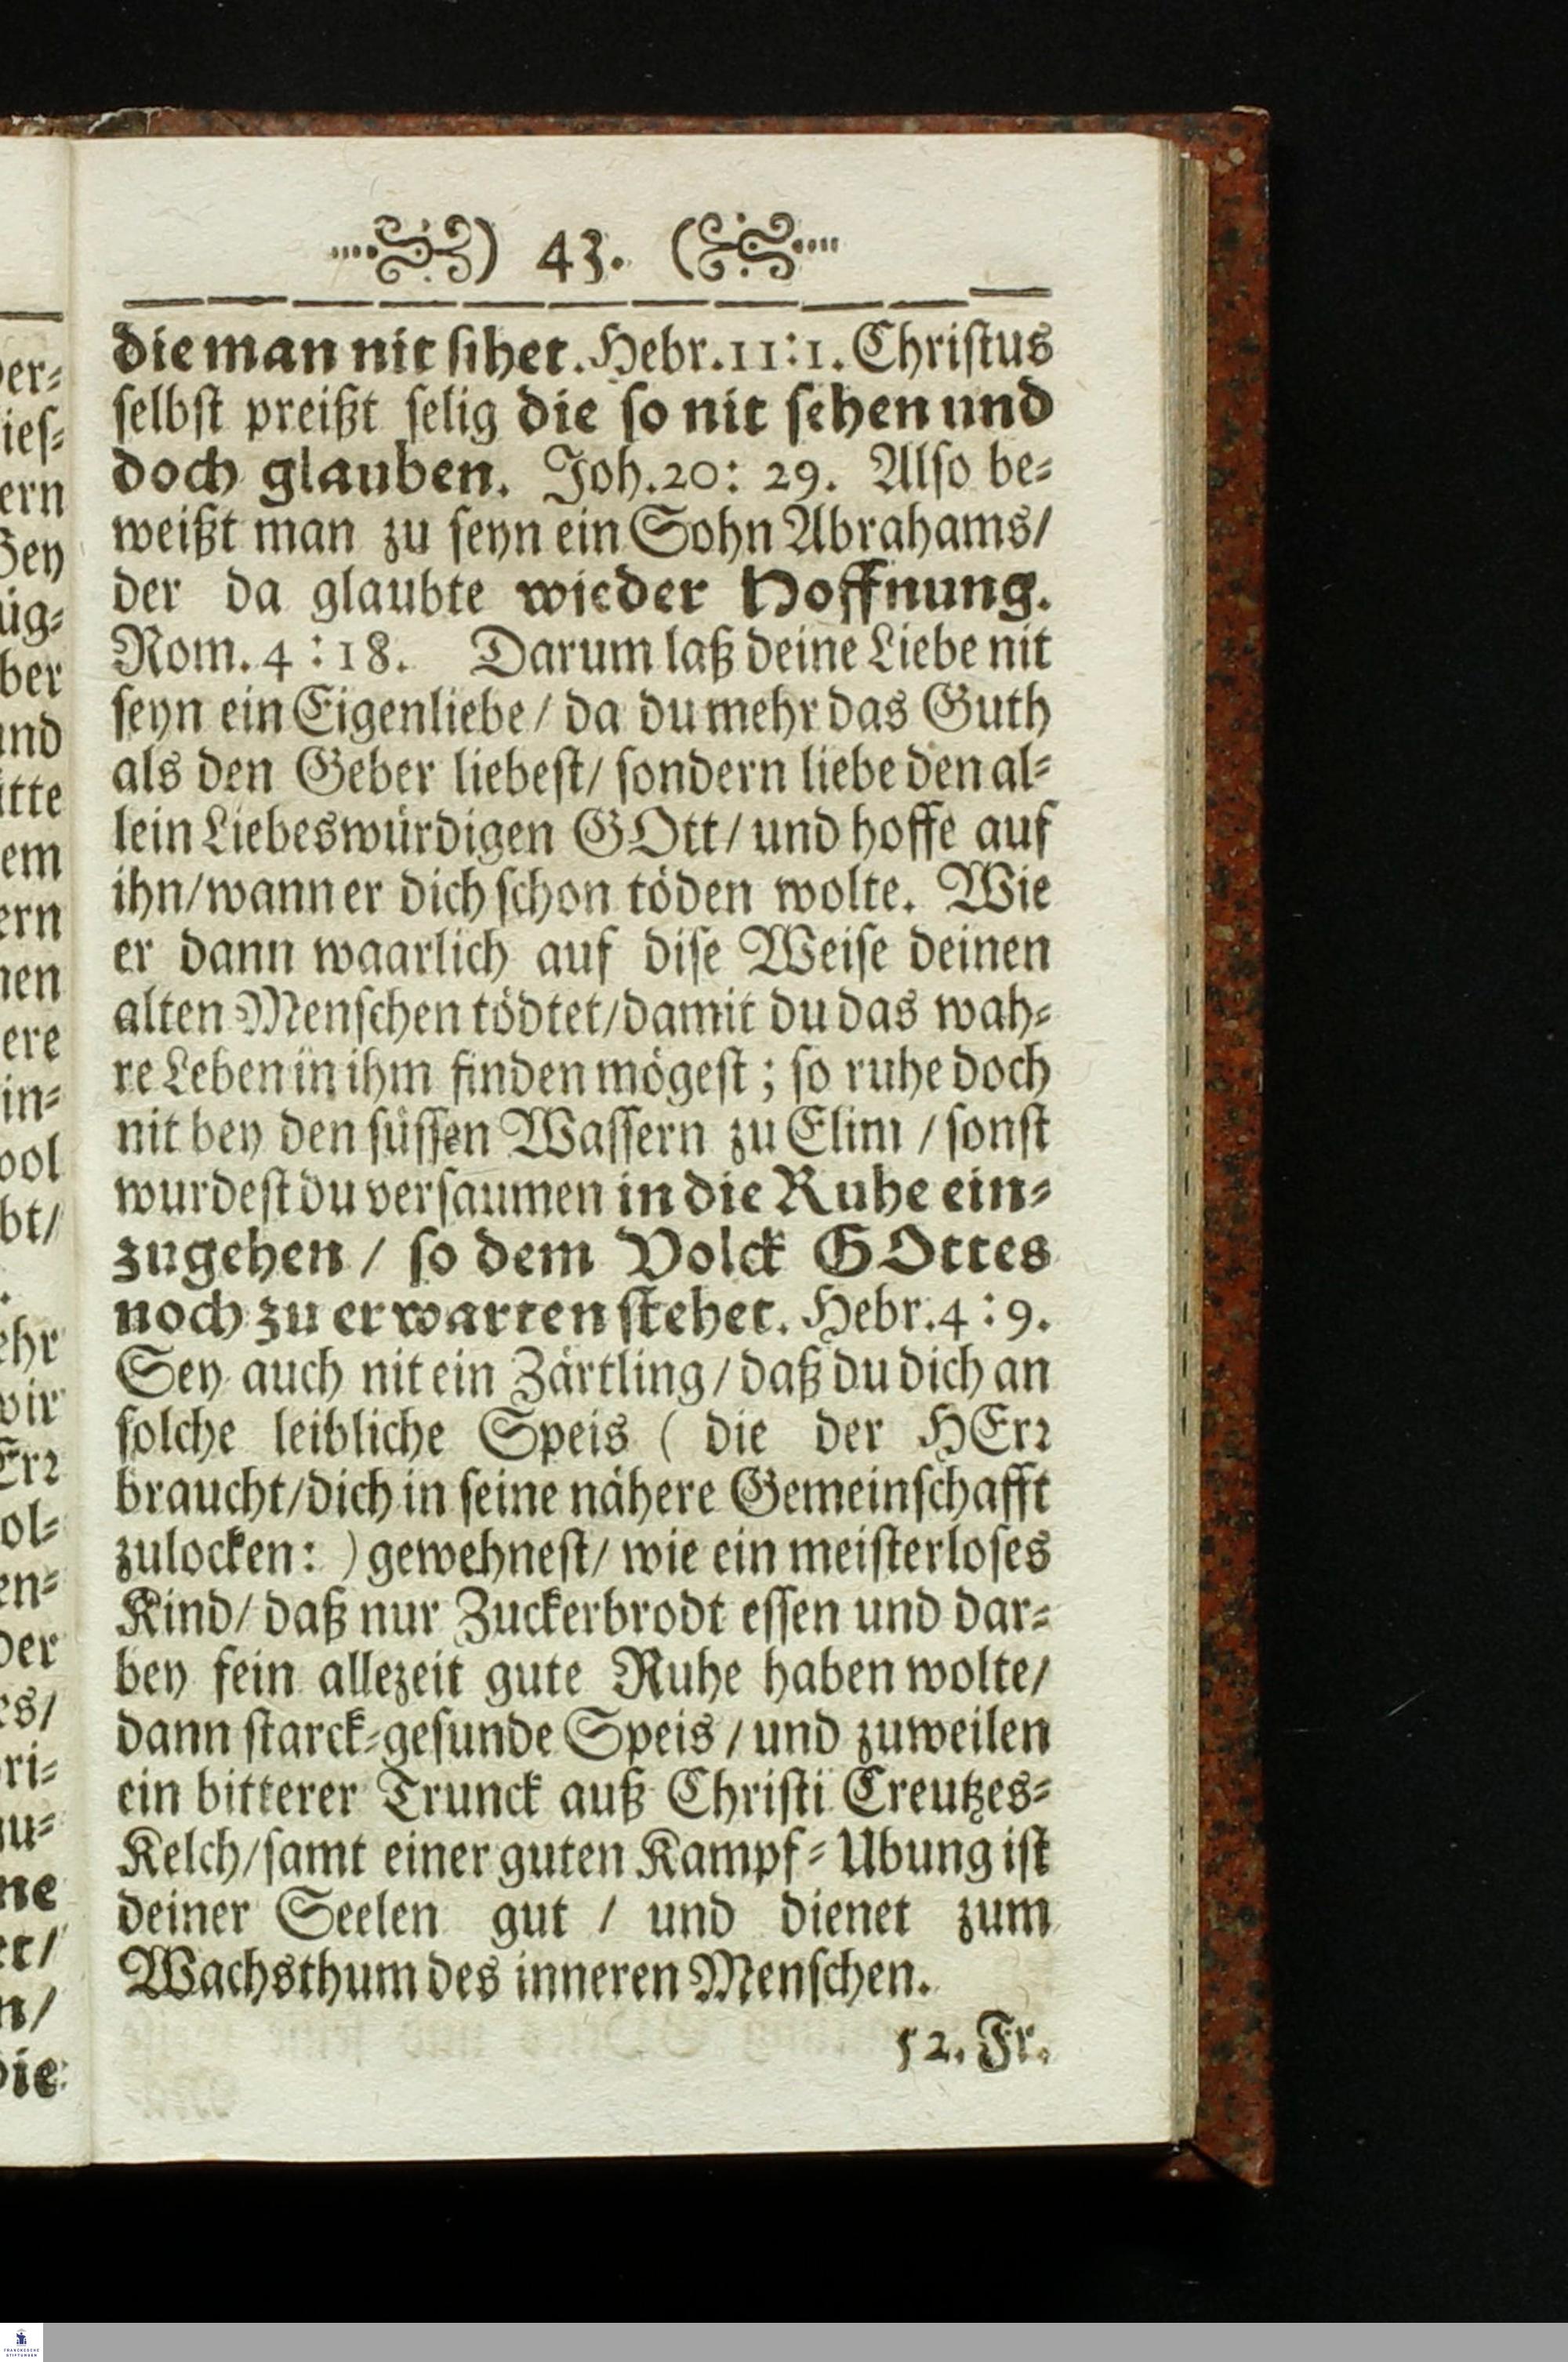 ) 43. (
die man nit sihet. Hebr. 11:1. Christus
selbst preißt selig die so nit sehen und
doch glauben. Joh. 20: 29. Also be-
weißt man zu seyn ein Sohn Abrahams/
der da glaubte wieder Hoffnung.
Rom. 4:18. Darum laß deine Liebe nit
seyn ein Eigenliebe/ da du mehr das Guth
als den Geber liebest/ sondern liebe den al-
lein Liebeswürdigen GOtt/ und hoffe auf
ihn/ wann er dich schon töden wolte. Wie
er dann waarlich auf dise Weise deinen
alten Menschen tödtet/ damit du das wah-
re Leben in ihm finden mögest; so ruhe doch
nit bey den süssen Wassern zu Elim / sonst
wurdest du versaumen in die Ruhe ein-
zugehen / so dem Volck GOttes
noch zu erwarten stehet. Hebr. 4:9.
Sey auch nit ein Zärtling/ daß du dich an
solche leibliche Speis ( die der HErr
braucht/ dich in seine nähere Gemeinschafft
zulocken: ) gewehnest/ wie ein meisterloses
Kind/ daß nur Zuckerbrodt essen und dar-
bey fein allezeit gute Ruhe haben wolte/
dann starck-gesunde Speis / und zuweilen
ein bitterer Trunck auß Christi Creutzes-
Kelch/ samt einer guten Kampf-Ubung ist
deiner Seelen gut / und dienet zum
Wachsthum des inneren Menschen.
52. Fr.
FRANCKESCHE
STIFTUNGEN